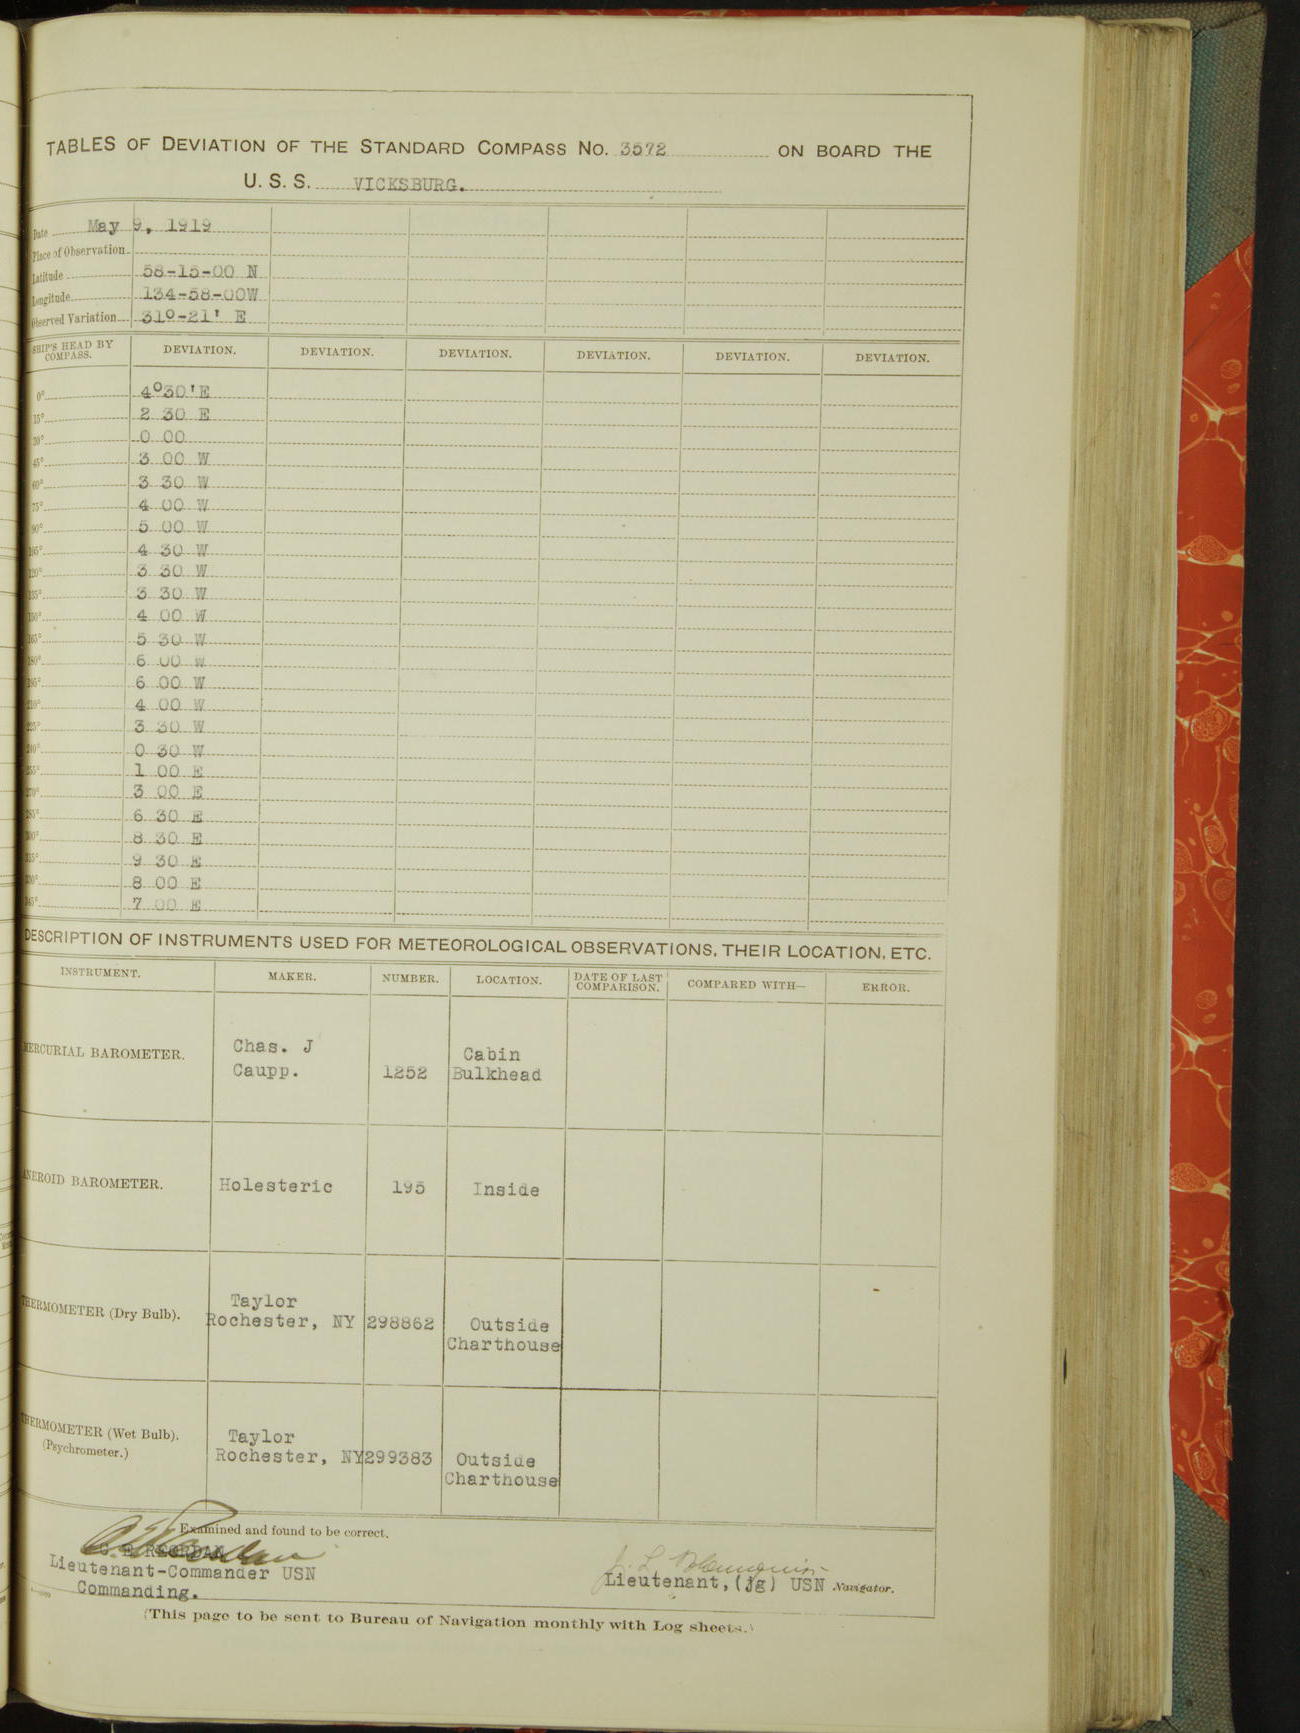 TABLES OF DEVIATION OF THE STANDARD COMPASS NO. 3572 ON BOARD THE
U. S. S. VICKSBURG.
Date May 9, 1919
Place of Observation
Latitude 58-15-00 N
Longitude 134-58-00W
Observed Variation 31º-21' E
SHIP'S HEAD BY COMPASS. DEVIATION. DEVIATION. DEVIATION. DEVIATION. DEVIATION. DEVIATION.
0° 4º30'E
15° 2 30 E
30° 0 00
45° 3 00 W
60° 3 30 W
75° 4 00 W
90° 5 00 W
105° 4 30 W
120° 3 30 W
135° 3 30 W
150° 4 00 W
165° 5 30 W
180° 6 00 W
195° 6 00 W
210° 4 00 W
225° 3 30 W
240° 0 30 W
255° 1 00 E
270° 3 00 E
285° 6 30 E
300° 8 30 E
315° 9 30 E
330° 8 00 E
345° 7 00 E
DESCRIPTION OF INSTRUMENTS USED FOR METEOROLOGICAL OBSERVATIONS, THEIR LOCATION, ETC.
INSTRUMENT. MAKER. NUMBER. LOCATION. DATE OF LAST COMPARISON. COMPARED WITH— ERROR.
MERCURIAL BAROMETER. Chas. J Caupp. 1252 Cabin Bulkhead
ANEROID BAROMETER. Holesteric 195 Inside
THERMOMETER (Dry Bulb). Taylor Rochester, NY 298862 Outside Charthouse
THERMOMETER (Wet Bulb). (Psychrometer.) Taylor Rochester, NY 299383 Outside Charthouse
Examined and found to be correct.
REORDAN
Lieutenant-Commander USN
Commanding.
Lieutenant, (jg) USN Navigator.
(This page to be sent to Bureau of Navigation monthly with Log sheets.)